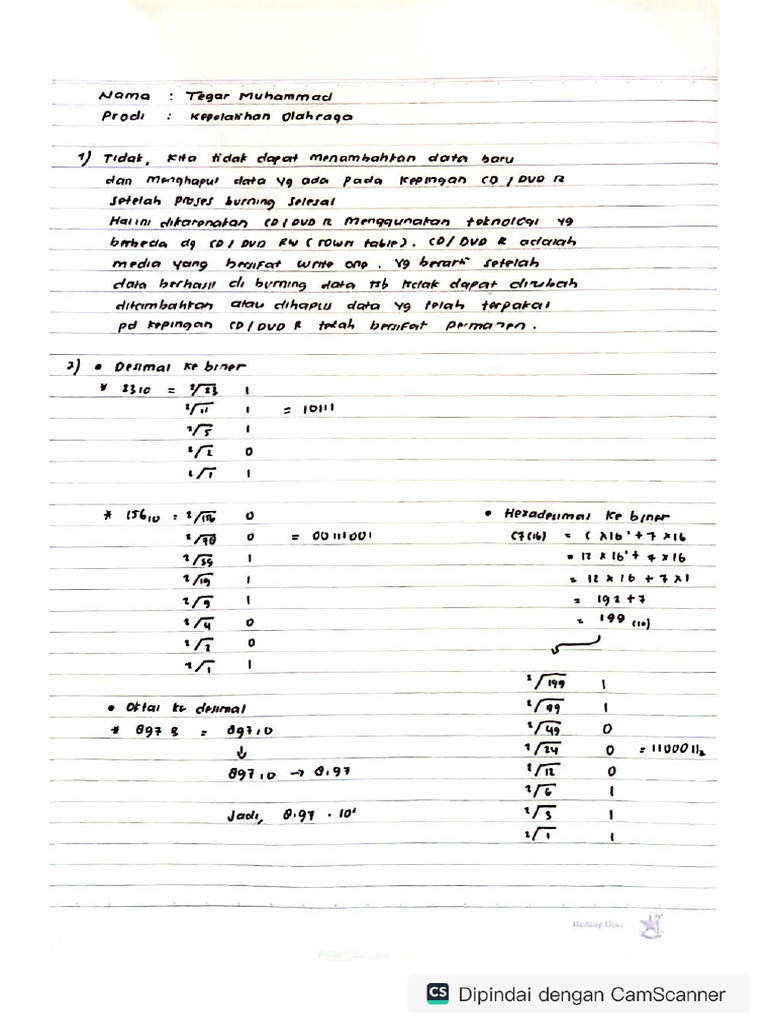 Nama : Tegar Muhammad
Prodi : Kepelatihan Olahraga
1) Tidak, Kita tidak dapat menambahkan data baru
dan menghapus data yg ada pada kepingan CD / DVD R
setelah proses burning selesai
Hal ini dikarenakan CD / DVD R menggunakan teknologi yg
berbeda dg CD / DVD RW ( rown table ). CD / DVD R adalah
media yang bersifat write one . Yg berarti setelah
data berhasil di burning data tsb tidak dapat dirubah
ditambahkan atau dihapus data yg telah terpakai
pd kepingan CD / DVD R telah bersifat permanen .
2) • Desimal ke biner
* 23 10 = 2√23 1
2√11 1 = 10111
2√5 1
2√2 0
2√1 1
* 156 10 = 2√156 0
2√78 0 = 00111001
2√39 1
2√19 1
2√9 1
2√4 0
2√2 0
2√1 1
• Oktal ke desimal
* 897 8 = 897,0
↓
897,0 → 8.97
Jadi, 8.97 . 10²
• Hexadesimal ke biner
C7 (16) = C x 16¹ + 7 x 16
= 12 x 16¹ + 7 x 16
= 12 x 16 + 7 x 1
= 192 + 7
= 199 (10)
2√199 1
2√99 1
2√49 0
2√24 0 = 1100011₂
2√12 0
2√6 1
2√3 1
2√1 1
Bintang Obor
CS Dipindai dengan CamScanner